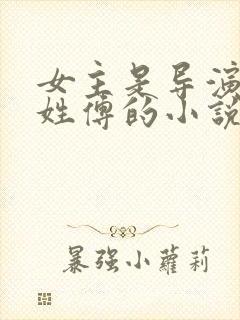 女主是导演
姓傅的小説
暴强小蘿莉